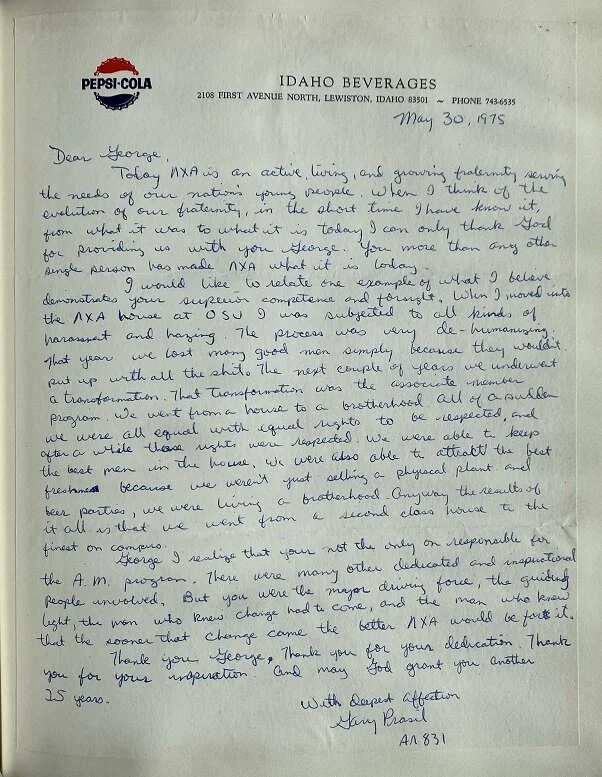 PEPSI-COLA
IDAHO BEVERAGES
2108 FIRST AVENUE NORTH, LEWISTON, IDAHO 83501 ~ PHONE 743-6535
May 30, 1975
Dear George,
Today ΛXA is an active, living, and growing fraternity serving
the needs of our nation's young people. When I think of the
evolution of our fraternity, in the short time I have know it,
from what it was to what it is today I can only thank God
for providing us with you George. You more than any other
single person has made ΛXA what it is today.
I would like to relate one example of what I believe
demonstrates your superior competence and forsight. When I moved into
the ΛXA house at OSU I was subjected to all kinds of
harassment and hazing. The process was very de-humanizing.
That year we lost many good men simply because they wouldn't
put up with all the shit. The next couple of years we underwent
a transformation. That transformation was the associate member
program. We went from a house to a brotherhood all of a sudden
we were all equal with equal rights to be respected, and
after a while those rights were respected. We were able to keep
the best men in the house. We were also able to attract the best
freshmen because we weren't just selling a physical plant and
beer parties, we were living a brotherhood. Anyway the results of
it all is that we went from a second class house to the
finest on campus.
George I realize that your not the only on responsible for
the A.M. program. There were many other dedicated and inspirational
people involved. But you were the major driving force, the guiding
light, the man who knew change had to come, and the man who knew
that the sooner that change came the better ΛXA would be for it.
Thank you George. Thank you for your dedication. Thank
you for your inspiration. And may God grant you another
25 years.
With deepest affection
Gary Prasil
AΛ 831